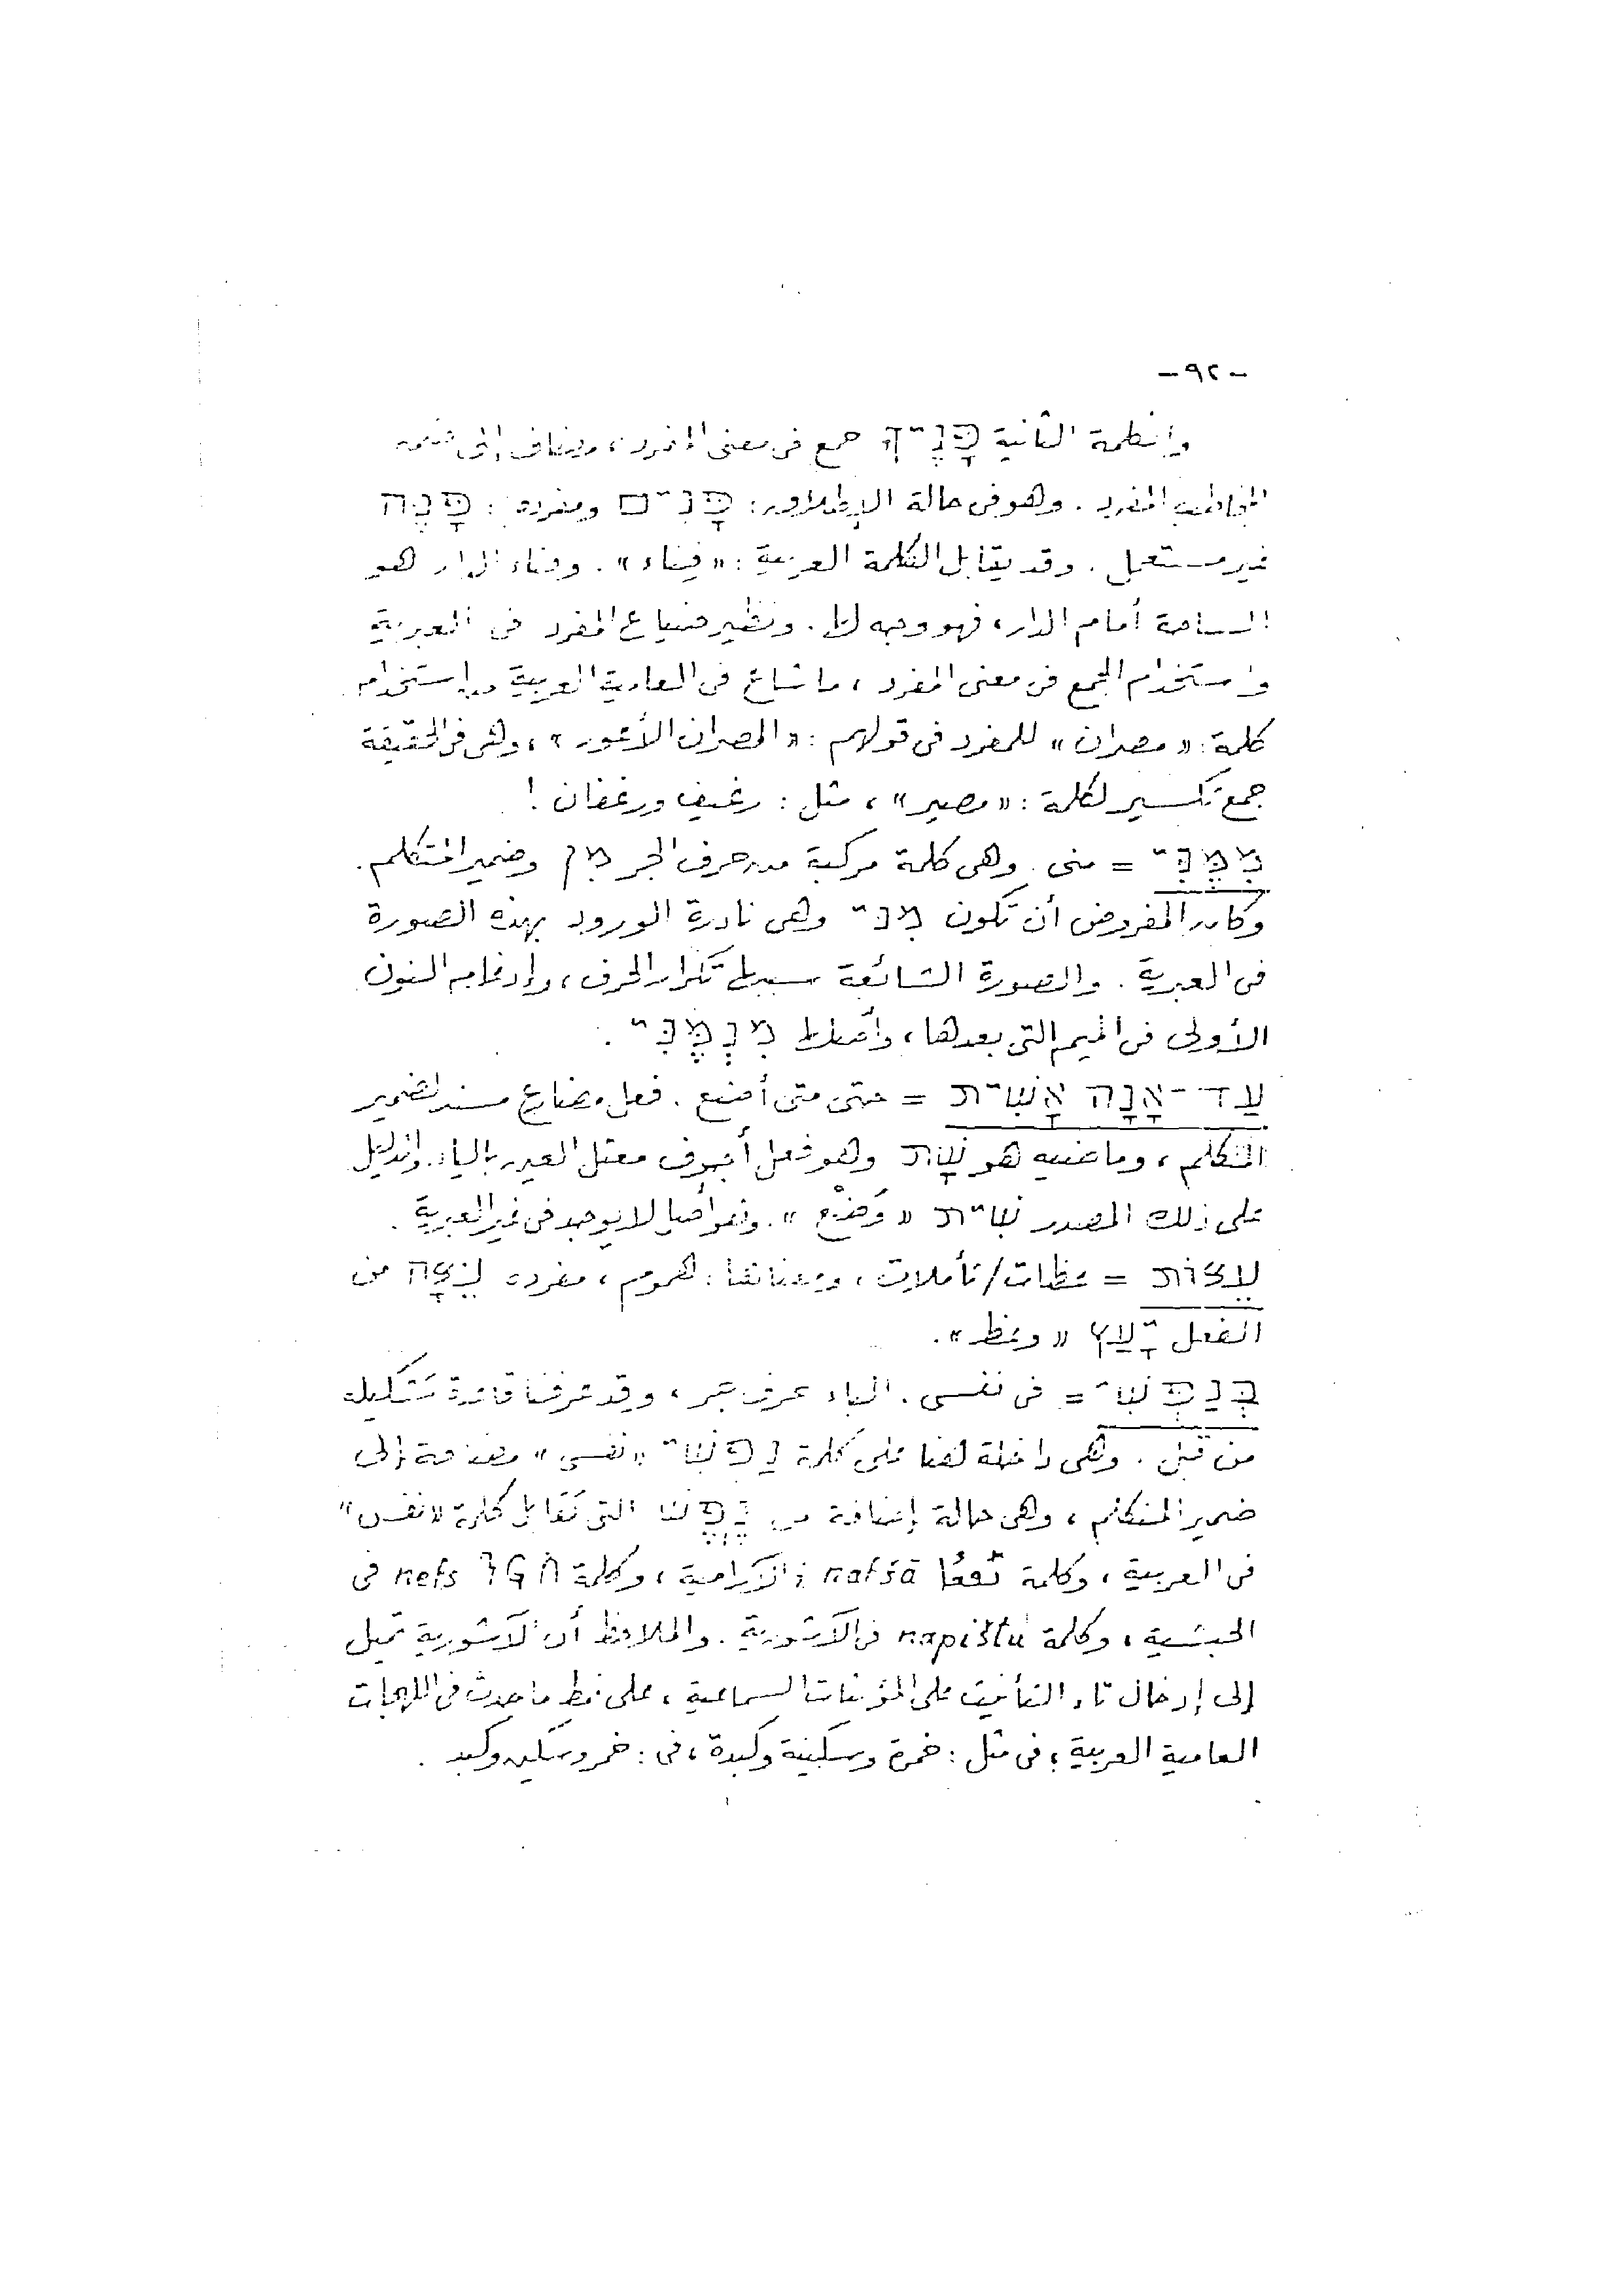 -٩٢-
والكلمة الثانية פָּנֶיךָ جمع فى معنى المفرد، ويضاف إلى ضمير
المخاطب المفرد. وهو فى حالة الإطلاق: פָּנִים ومفرده: פָּנֶה
غير مستعمل. وقد يقابل الكلمة العربية: «فِناء». وفناء الدار هو
الساحة أمام الدار، فهو وجه لها. ونظير ضياع المفرد فى العبرية
واستخدام الجمع فى معنى المفرد، ما شاع فى العامية العربية من استخدام
كلمة: «مصران» للمفرد فى قولهم: «المصران الأعور»، وهى فى الحقيقة
جمع تكسير لكلمة: «مصير»، مثل: رغيف ورغفان!
מִמֶּנִּי = منى. وهى كلمة مركبة من حرف الجر מִן وضمير المتكلم.
وكان المفروض أن تكون מִנִּי وهى نادرة الورود بهذه الصورة
فى العبرية. والصورة الشائعة سببها تكرار الحرف، وإدغام النون
الأولى فى الميم التى بعدها، وأصلها מִנְמֶנִּי.
עַד־אָנָה אָשִׁית = حتى متى أضع. فعل مضارع مسند لضمير
المتكلم، وماضيه هو שָׁת وهو فعل أجوف معتل العين بالياء. والدليل
على ذلك المصدر שִׁית «وَضْع». وهو أصل لا يوجد فى غير العبرية.
עֵצוֹת = عظات/تأملات، ومعناها هنا: هموم، مفرده עֵצָה من
الفعل יָעַץ «وعظ».
בְּנַפְשִׁי = فى نفسى. الباء حرف جر، وقد عرفنا قاعدة تشكيله
من قبل. وهى داخلة هنا على كلمة נַפְשִׁי «نفسى» مضافة إلى
ضمير المتكلم، وهى حالة إضافة من נֶפֶשׁ التى تقابل كلمة «نفس»
فى العربية، وكلمة ܢܦܫܐ nafšā فى الآرامية، وكلمة ነፍስ nefs فى
الحبشية، وكلمة napištu فى الآشورية. والملاحظ أن الآشورية تميل
إلى إدخال تاء التأنيث على المؤنثات السماعية، على نمط ما حدث فى اللهجات
العامية العربية، فى مثل: خمرة وسكينة وكبدة، فى: خمر وسكين وكبد.